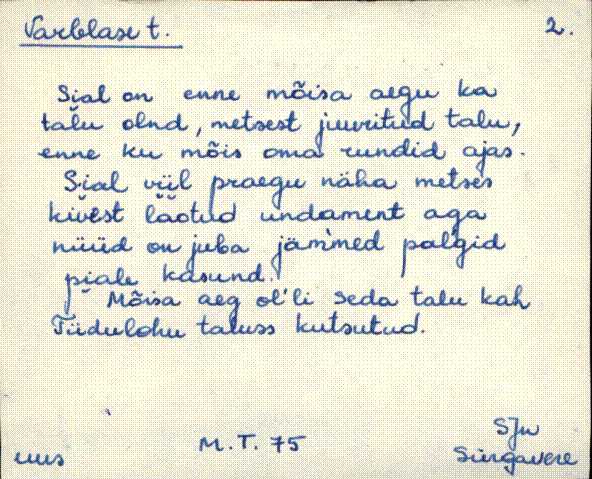 Varblase t. 2.
Sial on enne mõisa aegu ka
talu olnd, metsest juuritud talu,
enne ku mõis oma rundid ajas.
Sial viil praegu näha metses
kivest lãotud undament aga
nüüd on juba jämmed palgid
piale kasund.
Mõisa aeg ol'li seda talu kah
Tiidulohu taluss kutsutud.
M.T. 75
SJn
uus
Sürgavere